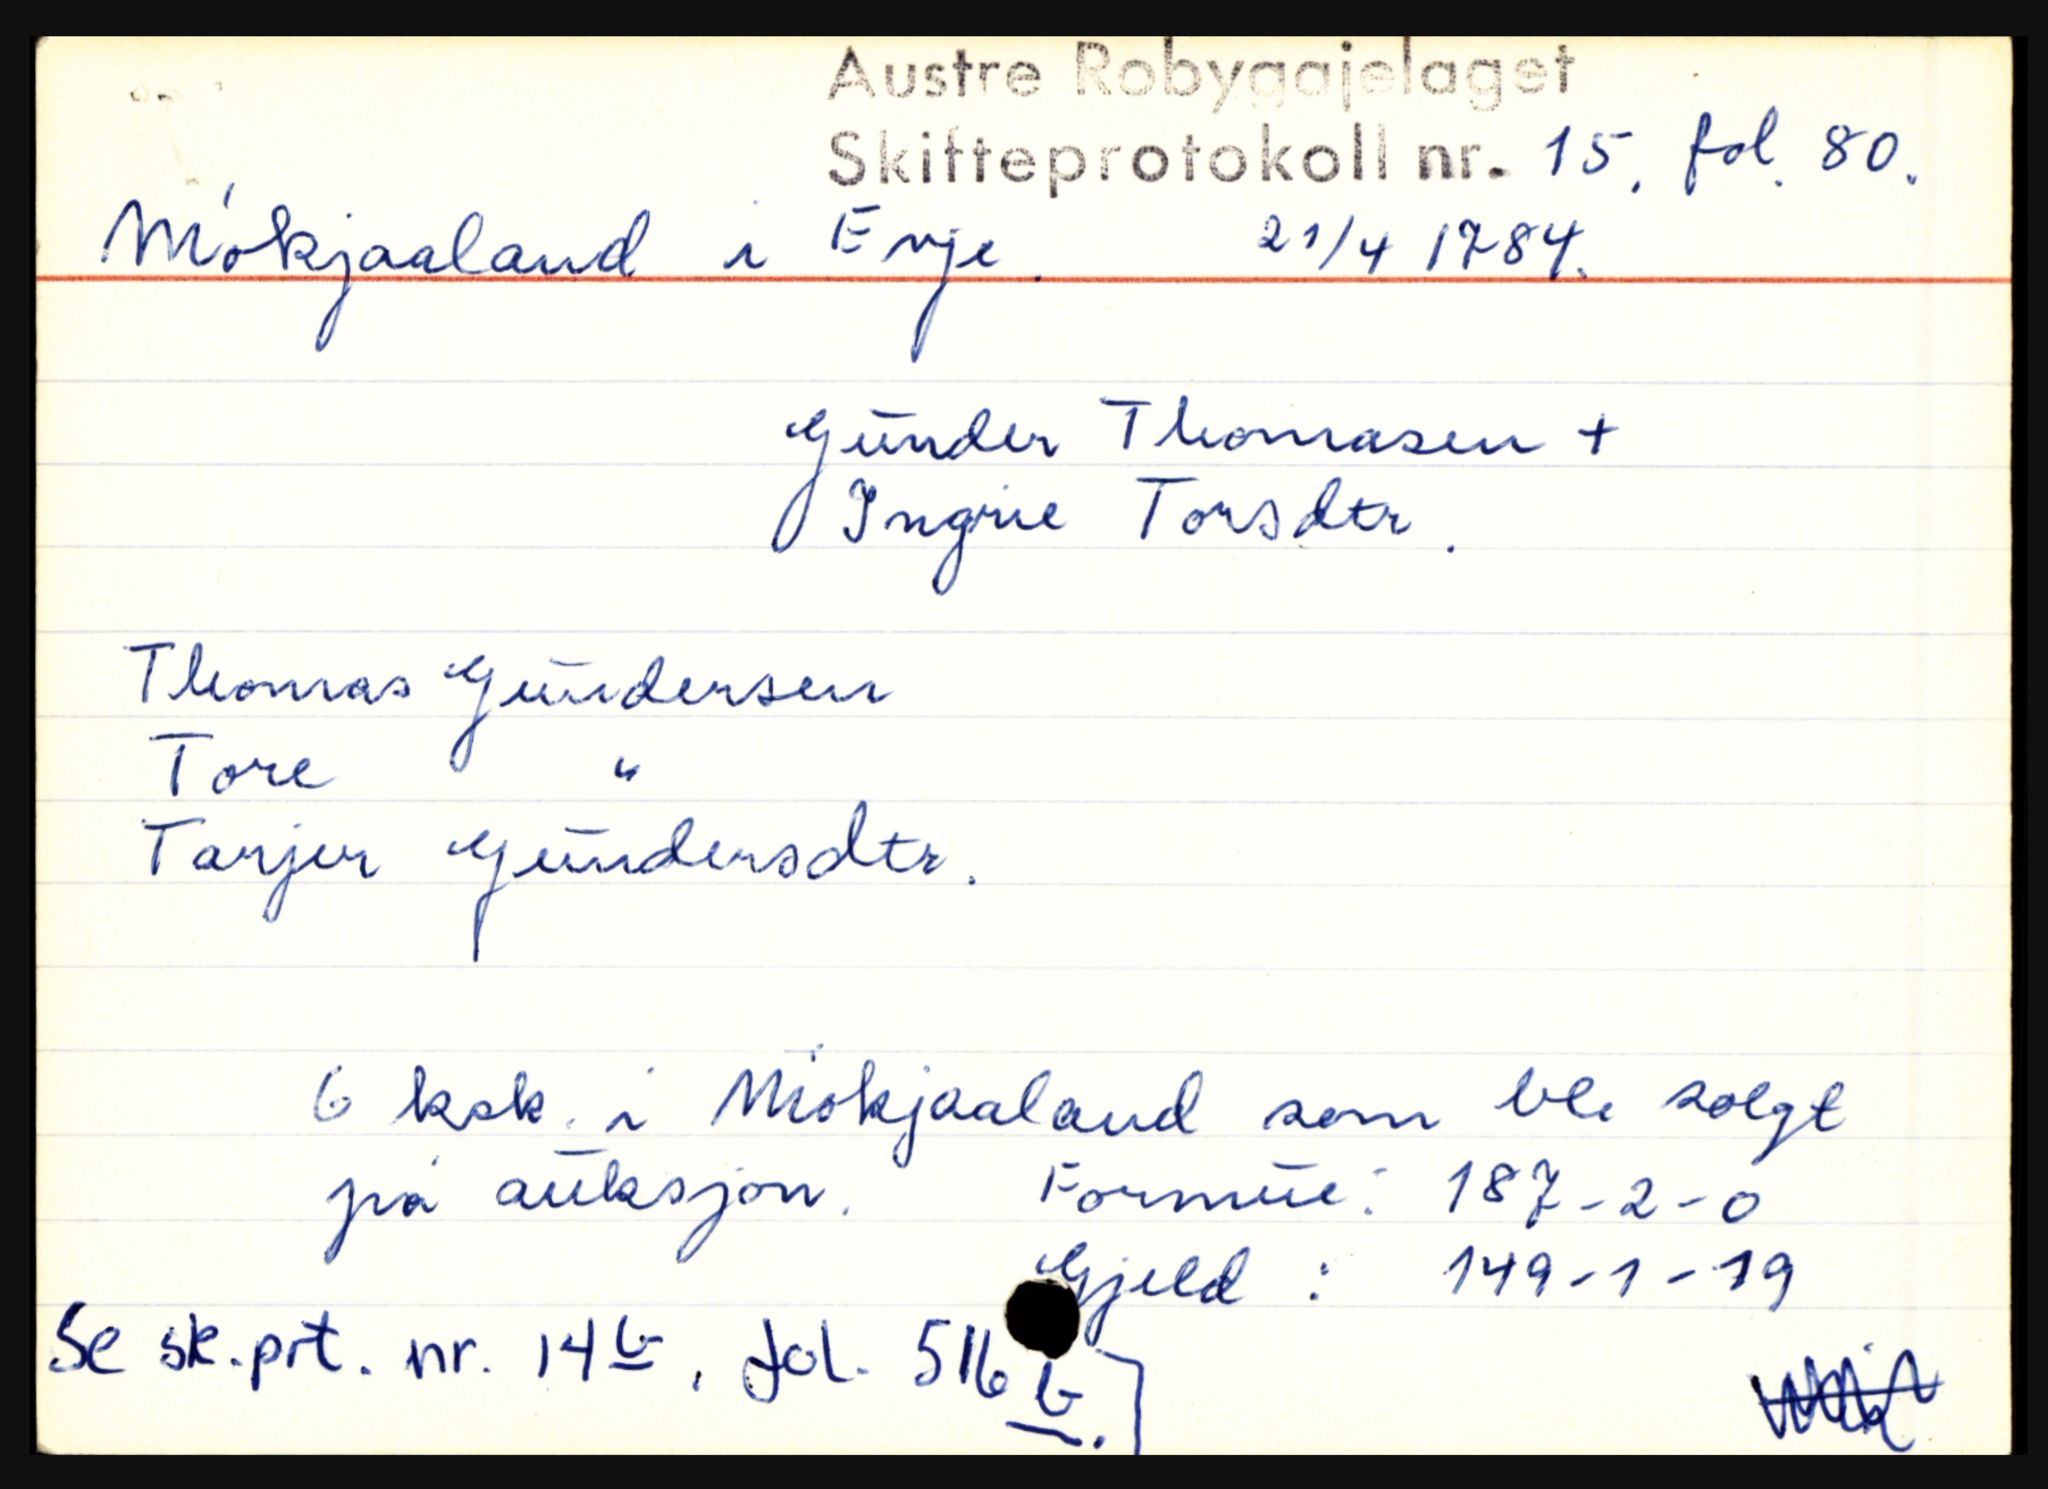 Austre Robygdelaget
Skifteprotokoll nr. 15. fol. 80.
Mókjaaland i Evje. 21/4 1784.
Gūnder Thomasen +
Ingrie Torsdtr.
Thomas Gūndersen
Tore "
Tarjer Gūndersdtr.
6 ksk. i Mókjaaland som ble solgt
på aūksjon. Formūe: 187-2-0
Gjeld : 149-1-19
Se sk.prt. nr. 14 b, fol. 516 b.]